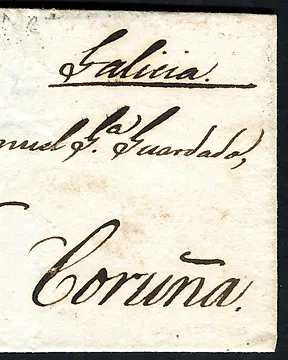 Galicia.
nuel G.ª Guardado,
Coruña.